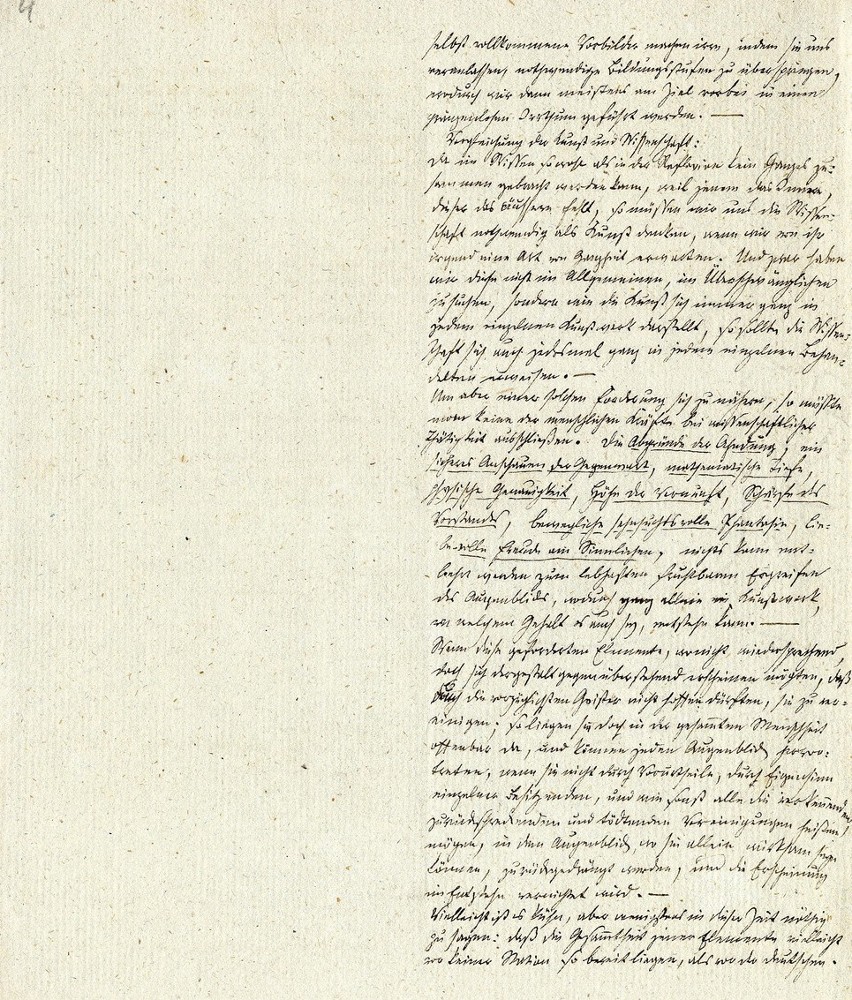 4
selbst vollkommene Vorbilder machen irre, indem sie uns
veranlassen, nothwendige Bildungsstufen zu überspringen,
wodurch wir denn meistens am Ziel vorbei in einen
gränzenlosen Irrthum geführt werden. —
Vergleichung der Kunst und Wissenschaft:
Da im Wissen sowohl als in der Reflexion kein Ganzes zu-
sammen gebracht werden kann, weil jenem das Innere,
dieser das äussere fehlt, so müssen wir uns die Wissen-
schaft nothwendig als Kunst denken, wenn wir von ihr
irgend eine Art von Ganzheit erwarten. Und zwar haben
wir diese nicht im Allgemeinen, im Überschwänglichen
zu suchen, sondern wie die Kunst sich immer ganz in
jedem einzelnen Kunstwerk darstellt, so sollte die Wissen-
schaft sich auch jedesmal ganz in jedem einzelnen Behan-
delten erweisen. —
Um aber einer solchen Foderung sich zu nähern, so müßte
man keine der menschlichen Kräfte bei wissenschaftlicher
Thätigkeit ausschließen. Die Abgründe der Ahndung, ein
sicheres Anschauen der Gegenwart, mathematische Tiefe,
physische Genauigkeit, Höhe der Vernunft, Schärfe des
Verstandes, bewegliche sehnsuchtsvolle Phantasie, lie-
bevolle Freude am Sinnlichen, nichts kann ent-
behrt werden zum lebhaften fruchtbaren Ergreifen
des Augenblicks, wodurch ganz allein ein Kunstwerk,
von welchem Gehalt es auch sey, entstehen kann. —
Wenn diese geforderten Elemente, wo nicht wiedersprechend,
doch sich dergestalt gegenüberstehend erscheinen mögten, daß
auch die vorzüglichsten Geister nicht hoffen dürften, sie zu ver-
einigen; so liegen sie doch in der gesammten Menschheit
offenbar da, und können jeden Augenblick hervor-
treten, wenn sie nicht durch Vorurtheile, durch Eigensinn
einzelner Besitzenden, und wie sonst alle die verkennenden,
zurückschreckenden und tödtenden Verneinungen heißen
mögen, in dem Augenblick wo sie allein wirksam seyn
können, zurückgedrängt werden, und die Erscheinung
im Entstehen vernichtet wird. —
Vielleicht ist es kühn, aber wenigstens in dieser Zeit nöthig
zu sagen: daß die Gesammtheit jener Elemente vielleicht
vor keiner Nation so bereit liegen, als vor der deutschen.